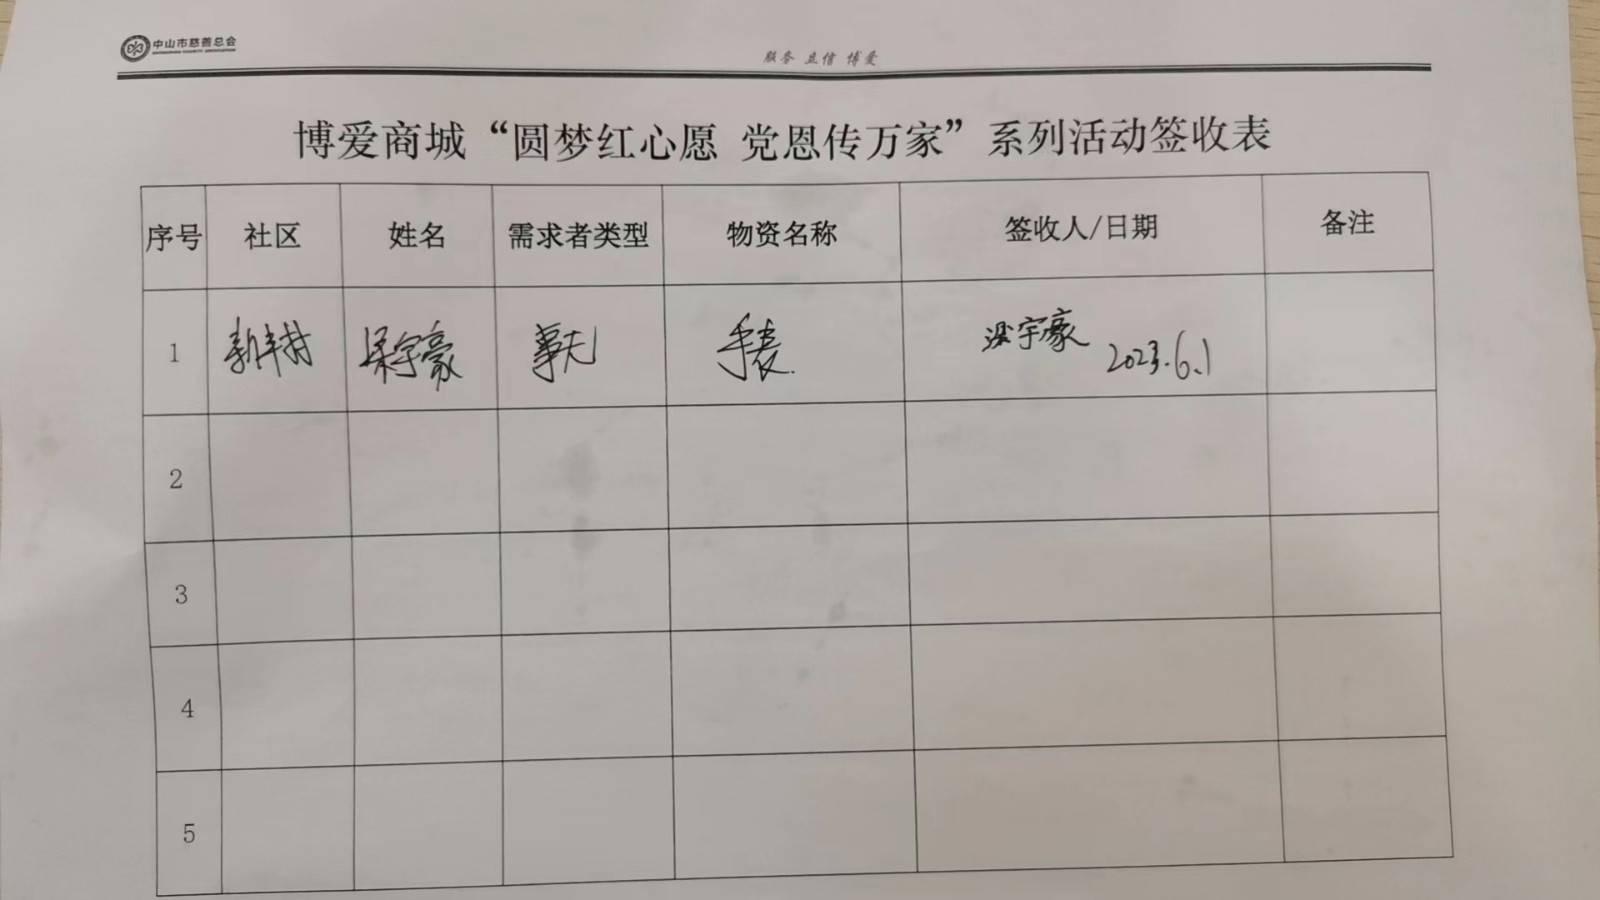 中山市慈善总会
ZHONGSHAN CHARITY FEDERATION
服务 立信 博爱
博爱商城“圆梦红心愿 党恩传万家”系列活动签收表
序号 社区 姓名 需求者类型 物资名称 签收人/日期 备注
1 梁宇豪 手表. 梁宇豪 2023.6.1
2
3
4
5